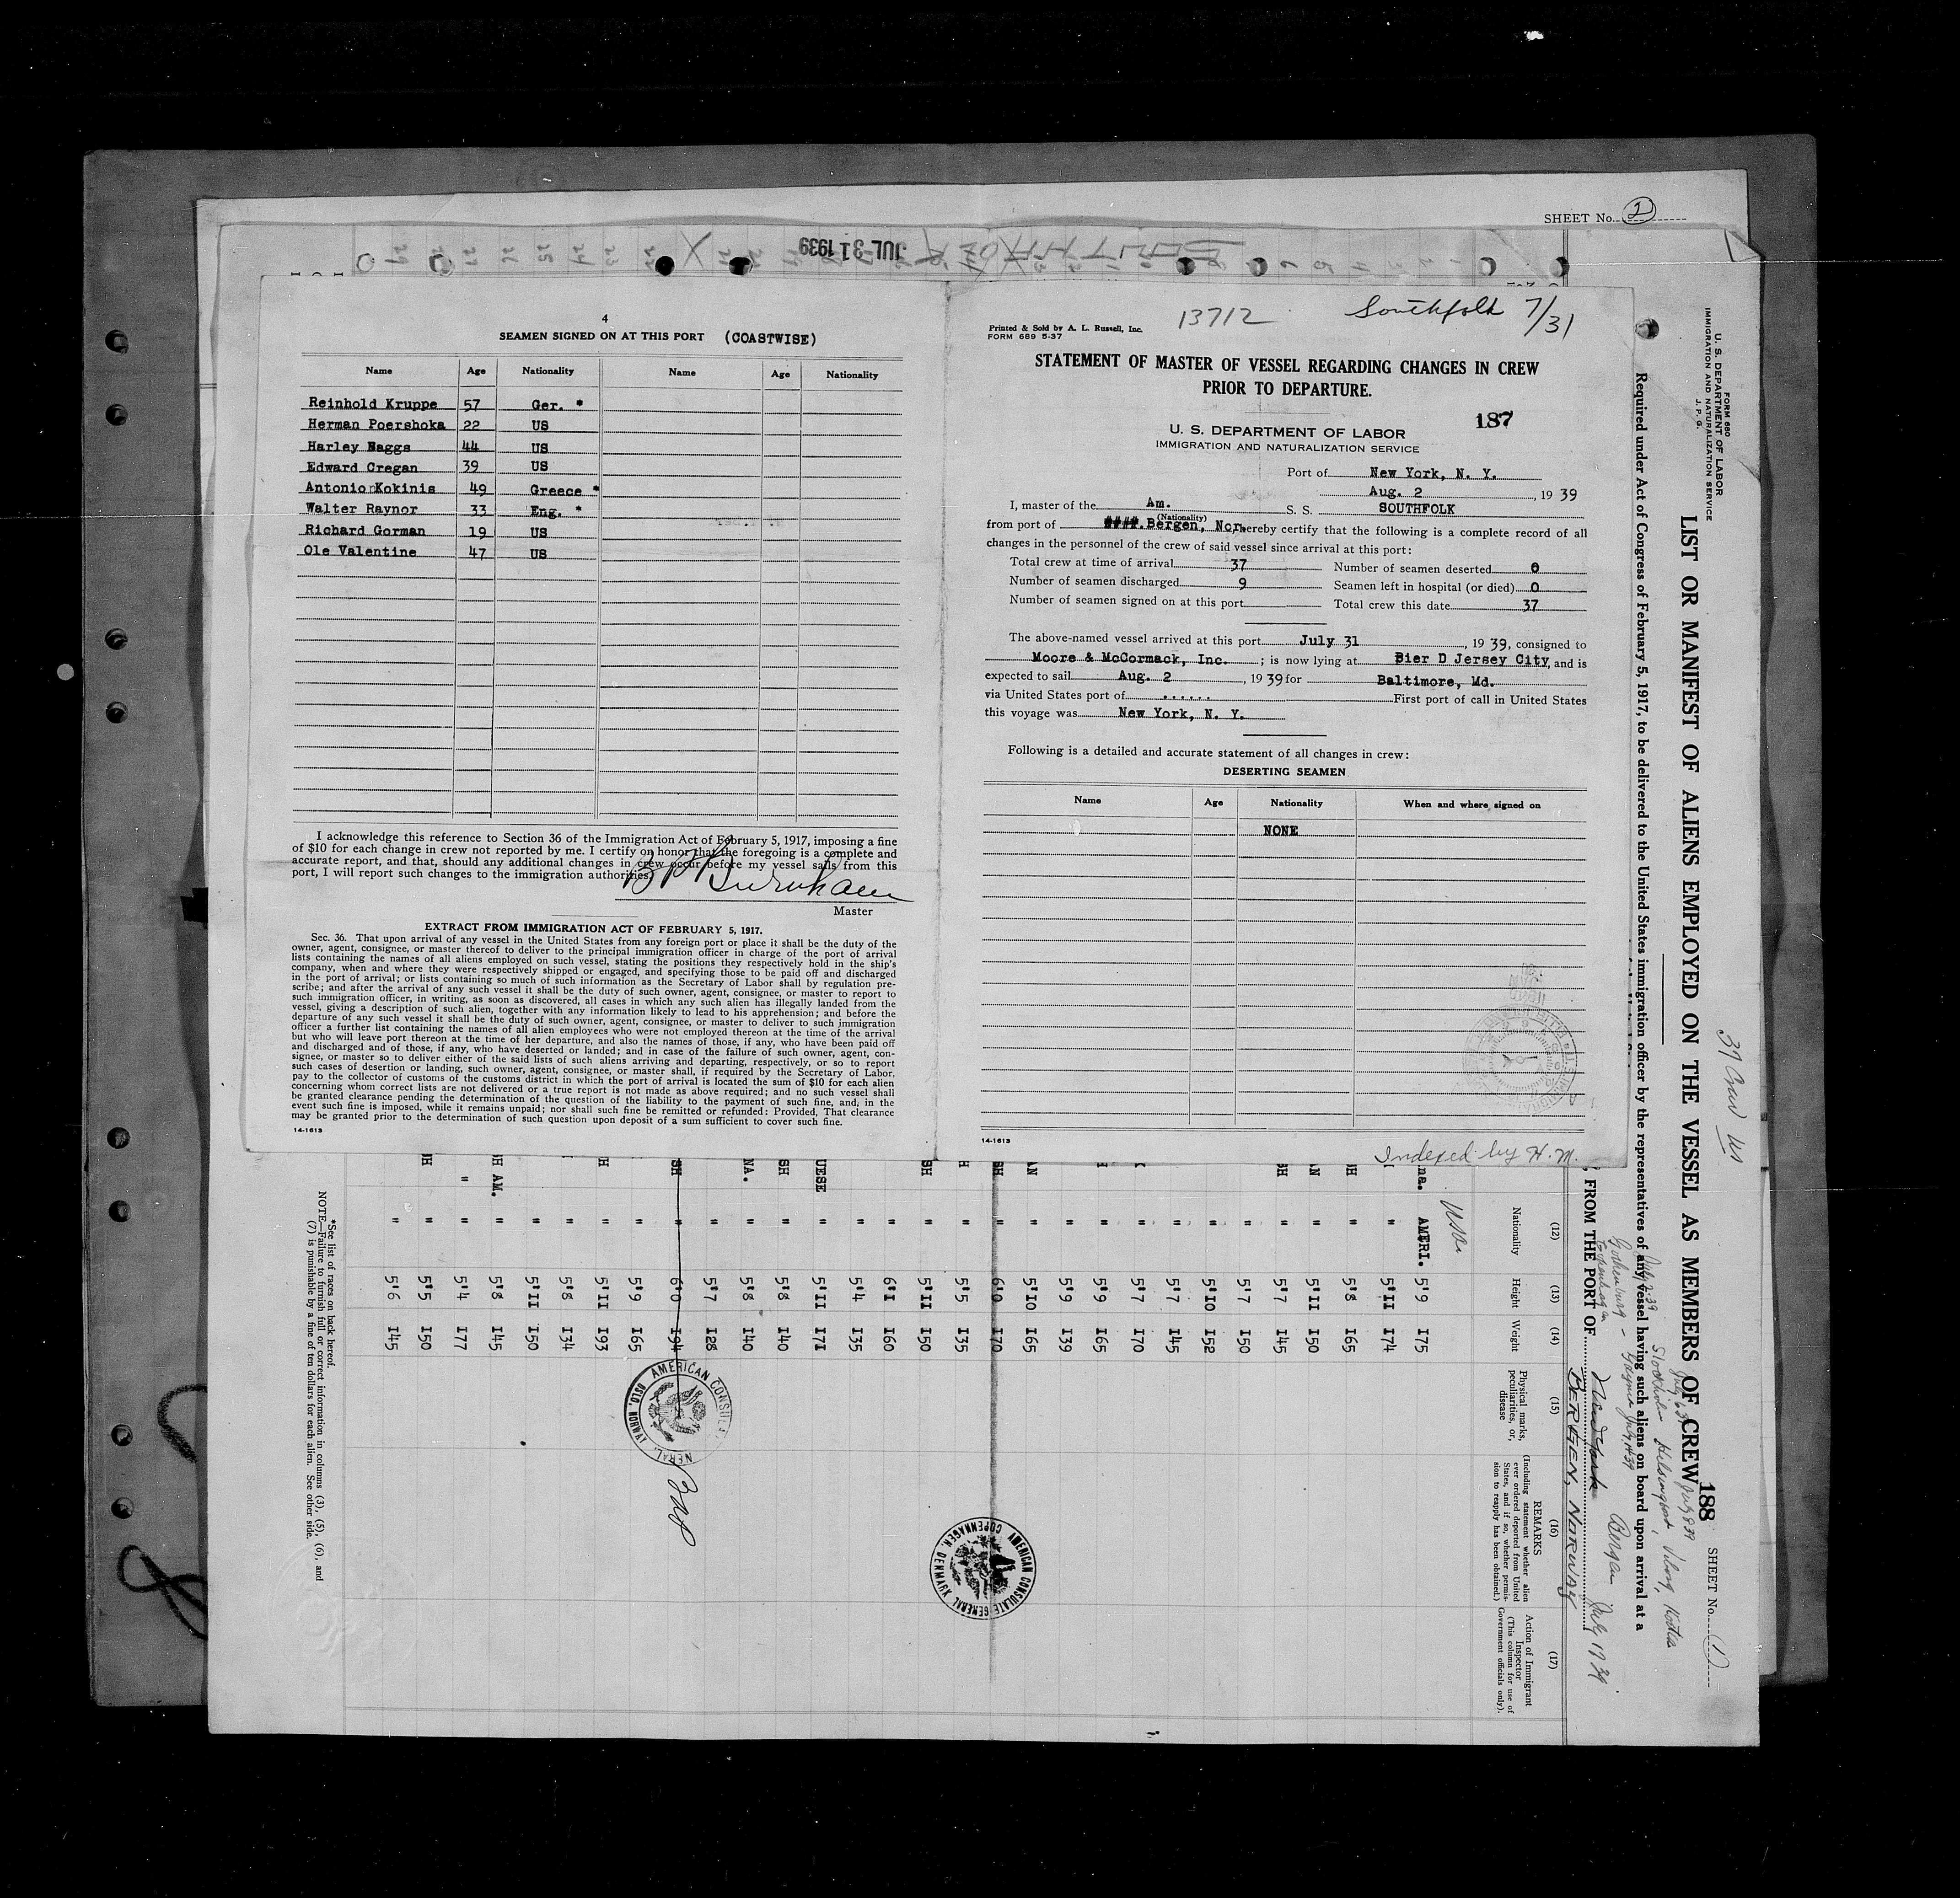 SHEET No. 2
JUL 31 1939
4
SEAMEN SIGNED ON AT THIS PORT (COASTWISE)
Name Age Nationality Name Age Nationality
Reinhold Kruppe 57 Ger. *
Herman Poershoka 22 US
Harley Naggs 44 US
Edward Cregan 39 US
Antonio Kokinis 49 Greece *
Walter Raynor 33 Eng. *
Richard Gorman 19 US
Ole Valentine 47 US
I acknowledge this reference to Section 36 of the Immigration Act of February 5, 1917, imposing a fine
of $10 for each change in crew not reported by me. I certify on honor that the foregoing is a complete and
accurate report, and that, should any additional changes in crew occur before my vessel sails from this
port, I will report such changes to the immigration authorities.
Burnham
Master
EXTRACT FROM IMMIGRATION ACT OF FEBRUARY 5, 1917.
Sec. 36. That upon arrival of any vessel in the United States from any foreign port or place it shall be the duty of the
owner, agent, consignee, or master thereof to deliver to the principal immigration officer in charge of the port of arrival
lists containing the names of all aliens employed on such vessel, stating the positions they respectively hold in the ship's
company, when and where they were respectively shipped or engaged, and specifying those to be paid off and discharged
in the port of arrival; or lists containing so much of such information as the Secretary of Labor shall by regulation pre-
scribe; and after the arrival of any such vessel it shall be the duty of such owner, agent, consignee, or master to report to
such immigration officer, in writing, as soon as discovered, all cases in which any such alien has illegally landed from the
vessel, giving a description of such alien, together with any information likely to lead to his apprehension; and before the
departure of any such vessel it shall be the duty of such owner, agent, consignee, or master to deliver to such immigration
officer a further list containing the names of all alien employees who were not employed thereon at the time of the arrival
but who will leave port thereon at the time of her departure, and also the names of those, if any, who have been paid off
and discharged and of those, if any, who have deserted or landed; and in case of the failure of such owner, agent, con-
signee, or master so to deliver either of the said lists of such aliens arriving and departing, respectively, or so to report
such cases of desertion or landing, such owner, agent, consignee, or master shall, if required by the Secretary of Labor,
pay to the collector of customs of the customs district in which the port of arrival is located the sum of $10 for each alien
concerning whom correct lists are not delivered or a true report is not made as above required; and no such vessel shall
be granted clearance pending the determination of the question of the liability to the payment of such fine, and, in the
event such fine is imposed, while it remains unpaid; nor shall such fine be remitted or refunded: Provided, That clearance
may be granted prior to the determination of such question upon deposit of a sum sufficient to cover such fine.
14-1613
Printed & Sold by A. L. Russell, Inc.
FORM 689 5-37
13712
Southfolk 7/31
STATEMENT OF MASTER OF VESSEL REGARDING CHANGES IN CREW
PRIOR TO DEPARTURE.
187
U. S. DEPARTMENT OF LABOR
IMMIGRATION AND NATURALIZATION SERVICE
Port of New York, N. Y.
Aug. 2, 19 39
I, master of the Am. S. S. SOUTHFOLK
(Nationality)
from port of ####.Bergen, Nor. hereby certify that the following is a complete record of all
changes in the personnel of the crew of said vessel since arrival at this port:
Total crew at time of arrival 37 Number of seamen deserted 0
Number of seamen discharged 9 Seamen left in hospital (or died) 0
Number of seamen signed on at this port Total crew this date 37
The above-named vessel arrived at this port July 31, 19 39, consigned to
Moore & McCormack, Inc. ; is now lying at Bier D Jersey City, and is
expected to sail Aug. 2, 19 39 for Baltimore, Md.
via United States port of ...... First port of call in United States
this voyage was New York, N. Y.
Following is a detailed and accurate statement of all changes in crew:
DESERTING SEAMEN
Name Age Nationality When and where signed on
NONE
14-1613
Indexed by H. M.
FORM 680
U. S. DEPARTMENT OF LABOR
IMMIGRATION AND NATURALIZATION SERVICE
J. P. G.
188
SHEET No. 1
LIST OR MANIFEST OF ALIENS EMPLOYED ON THE VESSEL AS MEMBERS OF CREW
Required under Act of Congress of February 5, 1917, to be delivered to the United States immigration officer by the representatives of any vessel having such aliens on board upon arrival at a
39 Crew US
, FROM THE PORT OF
BERGEN, NORWAY
Bergen July 19 39
(12) (13) (14) (15) (16) (17)
Nationality
Height
Weight
Physical marks, peculiarities, or disease
REMARKS
(Including statement whether alien ever ordered deported from United States, and if so, whether permission to reapply has been obtained.)
Action of Immigrant Inspector
(This column for use of Government officials only).
na. AMERI. 5'9 175
" 5'11 174
H " 5'8 165
AN " 5'11 150
SH " 5'7 145
" 5'7 150
" 5'10 152
" 5'7 145
" 5'7 170
" 5'9 165
" 5'9 139
AN " 5'10 165
SH " 6'0 170
H " 5'5 135
SH " 5'11 150
" 6'1 160
" 5'4 135
UESE " 5'11 171
SH " 5'8 140
NA. " 5'8 140
" 5'7 128
SH " 6'0 194
" 5'9 165
H " 5'11 193
" 5'8 134
" 5'11 150
H AM. " 5'8 145
" " 5'4 177
H " 5'5 150
" 5'6 145
AMERICAN CONSULATE GENERAL
OSLO, NORWAY
AMERICAN CONSULATE GENERAL
COPENHAGEN, DENMARK
*See list of races on back hereof.
NOTE—Failure to furnish full or correct information in columns (3), (5), (6), and
(7) is punishable by a fine of ten dollars for each alien. See other side.